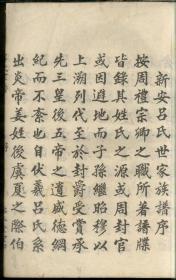 新安呂氏世家族譜序
按周禮宗卿之職所著譜牒
皆錄其姓氏之源或周封官
或因避地而子孫繼昭穆以
上溯列代至於封爵受賞承
先三皇後五帝之遺盛德綱
紀而不紊也自伏羲呂氏系
出炎帝姜姓後虞夏之際伯